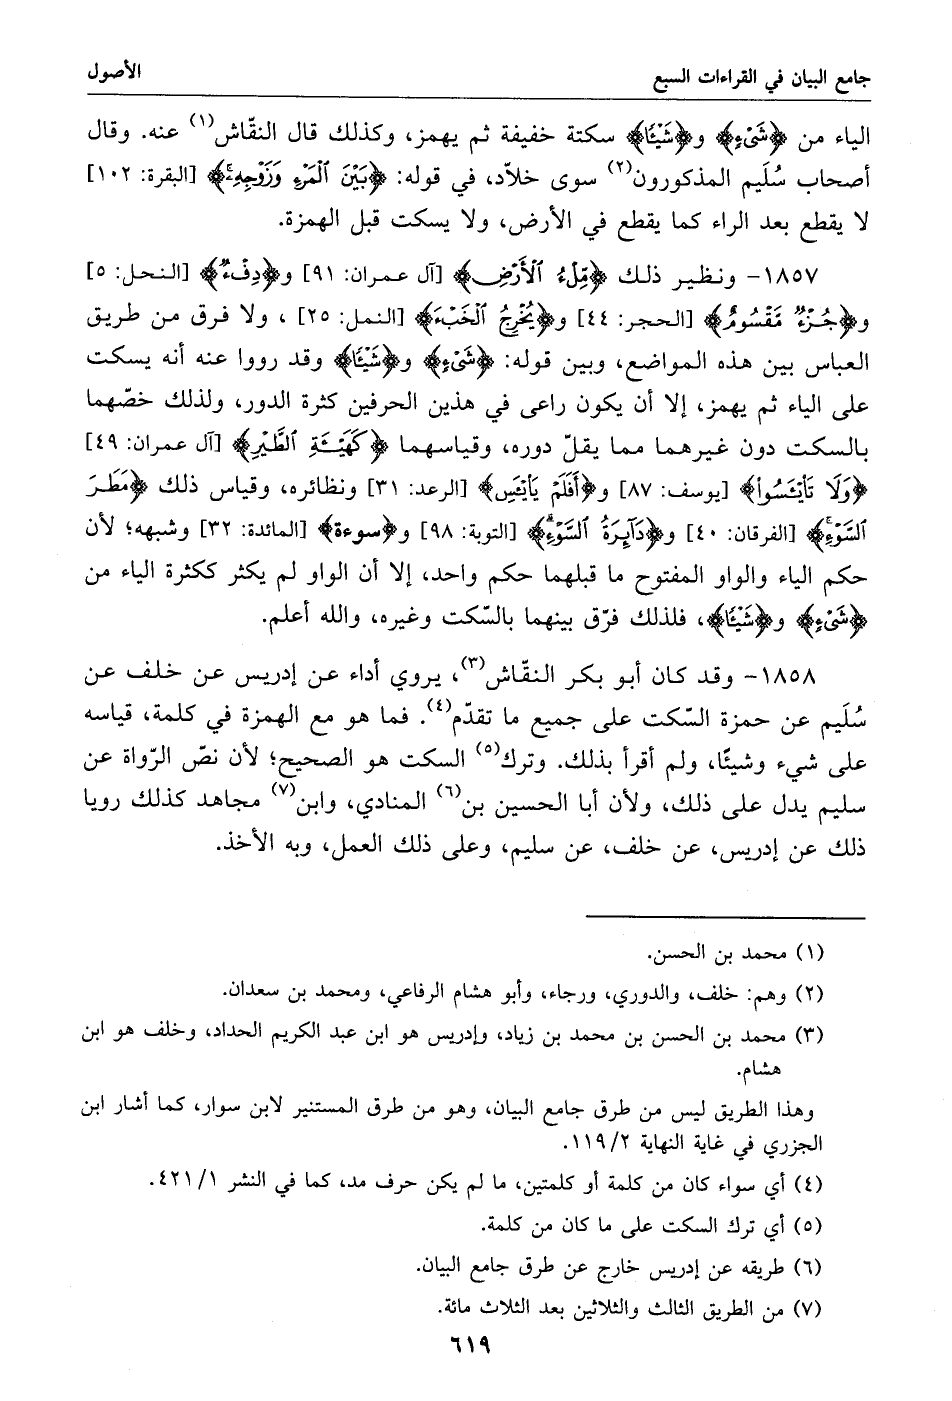 جامع البيان في القراءات السبع الأصول
الياء من ﴿شَيْءٍ﴾ و﴿شَيْـًٔا﴾ سكتة خفيفة ثم يهمز، وكذلك قال النقّاش(١) عنه. وقال
أصحاب سُلَيم المذكورون(٢) سوى خلاّد، في قوله: ﴿بَيْنَ ٱلْمَرْءِ وَزَوْجِهِۦ﴾ [البقرة: ١٠٢]
لا يقطع بعد الراء كما يقطع في الأرض، ولا يسكت قبل الهمزة.
١٨٥٧- ونظير ذلك ﴿مِّلْءُ ٱلْأَرْضِ﴾ [آل عمران: ٩١] و﴿دِفْءٌ﴾ [النحل: ٥]
و﴿جُزْءٌ مَّقْسُومٌ﴾ [الحجر: ٤٤] و﴿يُخْرِجُ ٱلْخَبْءَ﴾ [النمل: ٢٥] ، ولا فرق من طريق
العباس بين هذه المواضع، وبين قوله: ﴿شَيْءٍ﴾ و﴿شَيْـًٔا﴾ وقد رووا عنه أنه يسكت
على الياء ثم يهمز، إلا أن يكون راعى في هذين الحرفين كثرة الدور، ولذلك خصّهما
بالسكت دون غيرهما مما يقلّ دوره، وقياسهما ﴿كَهَيْـَٔةِ ٱلطَّيْرِ﴾ [آل عمران: ٤٩]
﴿وَلَا تَا۟يْـَٔسُوا۟﴾ [يوسف: ٨٧] و﴿أَفَلَمْ يَا۟يْـَٔسِ﴾ [الرعد: ٣١] ونظائره، وقياس ذلك ﴿مَطَرَ
ٱلسَّوْءِ﴾ [الفرقان: ٤٠] و﴿دَآئِرَةُ ٱلسَّوْءِ﴾ [التوبة: ٩٨] و﴿سوءة﴾ [المائدة: ٣٢] وشبهه؛ لأن
حكم الياء والواو المفتوح ما قبلهما حكم واحد، إلا أن الواو لم يكثر ككثرة الياء من
﴿شَيْءٍ﴾ و﴿شَيْـًٔا﴾، فلذلك فرّق بينهما بالسّكت وغيره، والله أعلم.
١٨٥٨- وقد كان أبو بكر النقّاش(٣)، يروي أداء عن إدريس عن خلف عن
سُلَيم عن حمزة السّكت على جميع ما تقدّم(٤). فما هو مع الهمزة في كلمة، قياسه
على شيء وشيئًا، ولم أقرأ بذلك. وترك(٥) السكت هو الصحيح؛ لأن نصّ الرّواة عن
سليم يدل على ذلك، ولأن أبا الحسين بن(٦) المنادي، وابن(٧) مجاهد كذلك رويا
ذلك عن إدريس، عن خلف، عن سليم، وعلى ذلك العمل، وبه الأخذ.
(١) محمد بن الحسن.
(٢) وهم: خلف، والدوري، ورجاء، وأبو هشام الرفاعي، ومحمد بن سعدان.
(٣) محمد بن الحسن بن محمد بن زياد، وإدريس هو ابن عبد الكريم الحداد، وخلف هو ابن
هشام.
وهذا الطريق ليس من طرق جامع البيان، وهو من طرق المستنير لابن سوار، كما أشار ابن
الجزري في غاية النهاية ١١٩/٢.
(٤) أي سواء كان من كلمة أو كلمتين، ما لم يكن حرف مد، كما في النشر ٤٢١/١.
(٥) أي ترك السكت على ما كان من كلمة.
(٦) طريقه عن إدريس خارج عن طرق جامع البيان.
(٧) من الطريق الثالث والثلاثين بعد الثلاث مائة.
٦١٩